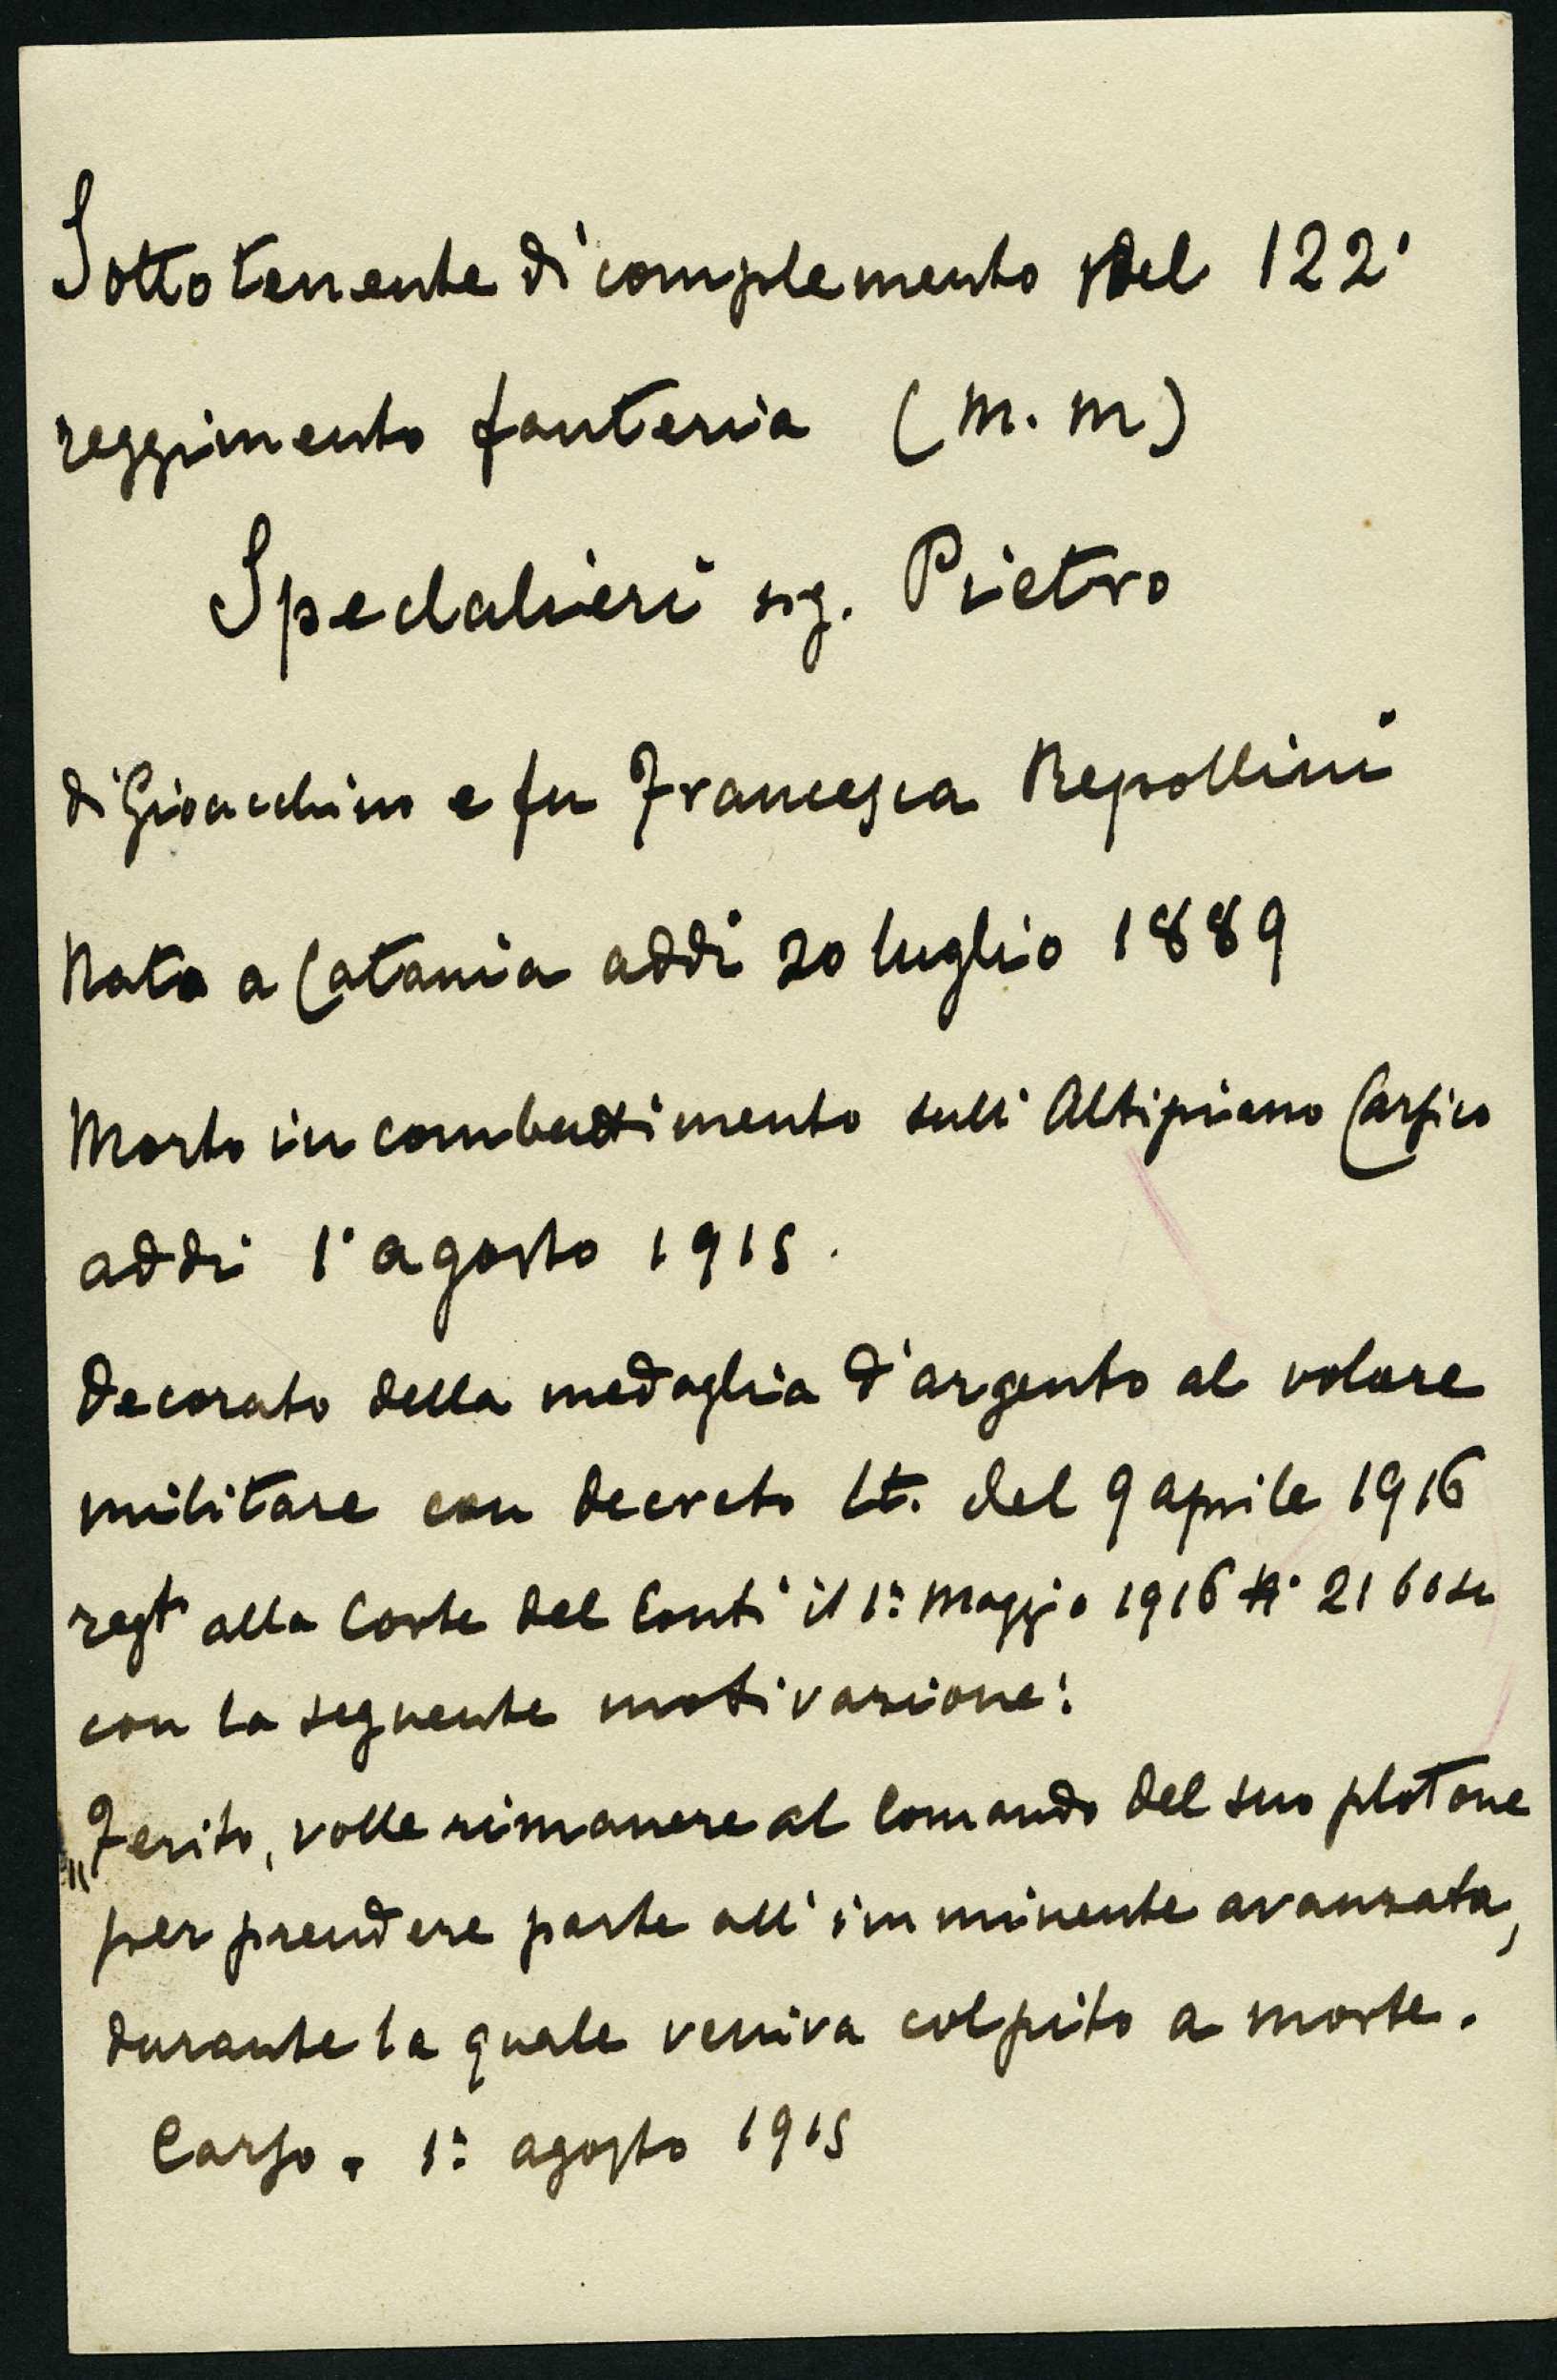 Sottotenente di complemento del 122°
reggimento fanteria (M. M)
Spedalieri sig. Pietro
di Gioacchino e fu Francesca Repollini
Nato a Catania addi 20 luglio 1889
Morto in combattimento sull'Altipiano Carsico
addi 1° agosto 1915.
Decorato della medaglia d'argento al valore
militare con decreto Lt. del 9 aprile 1916
regt alla Corte del Conti il 1° Maggio 1916 N°
con la seguente motivazione:
"Ferito, volle rimanere al Comando del suo plotone
per prendere parte all'imminente avanzata,
durante la quale veniva colpito a morte.
Carso. 1° agosto 1915